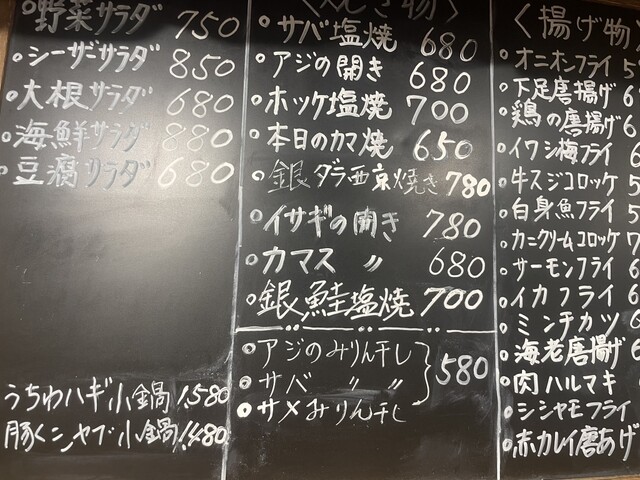 ○野菜サラダ 750
○シーザーサラダ 850
○大根サラダ 680
○海鮮サラダ 880
○豆腐サラダ 680
うちわハギ小鍋 1,580
豚しゃぶ小鍋 1,480
〈焼き物〉
○サバ塩焼 680
○アジの開き 680
○ホッケ塩焼 700
○本日のカマ焼 650
○銀ダラ西京焼き 780
○イサギの開き 780
○カマス 〃 680
○銀鮭塩焼 700
○アジのみりん干し
○サバ 〃 〃
○サメみりん干し
580
〈揚げ物
○オニオンフライ
○下足唐揚げ
○鶏の唐揚げ
○イワシ梅フライ
○牛スジコロッケ
○白身魚フライ
○カニクリームコロッケ
○サーモンフライ
○イカフライ
○ミンチカツ
○海老唐揚げ
○肉ハルマキ
○シシャモフライ
○赤カレイ唐あげ